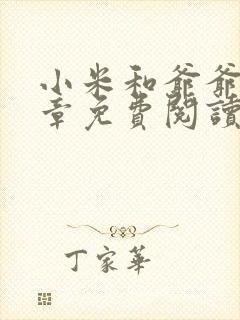 小米和爺爺
章免費閱讀
丁家華